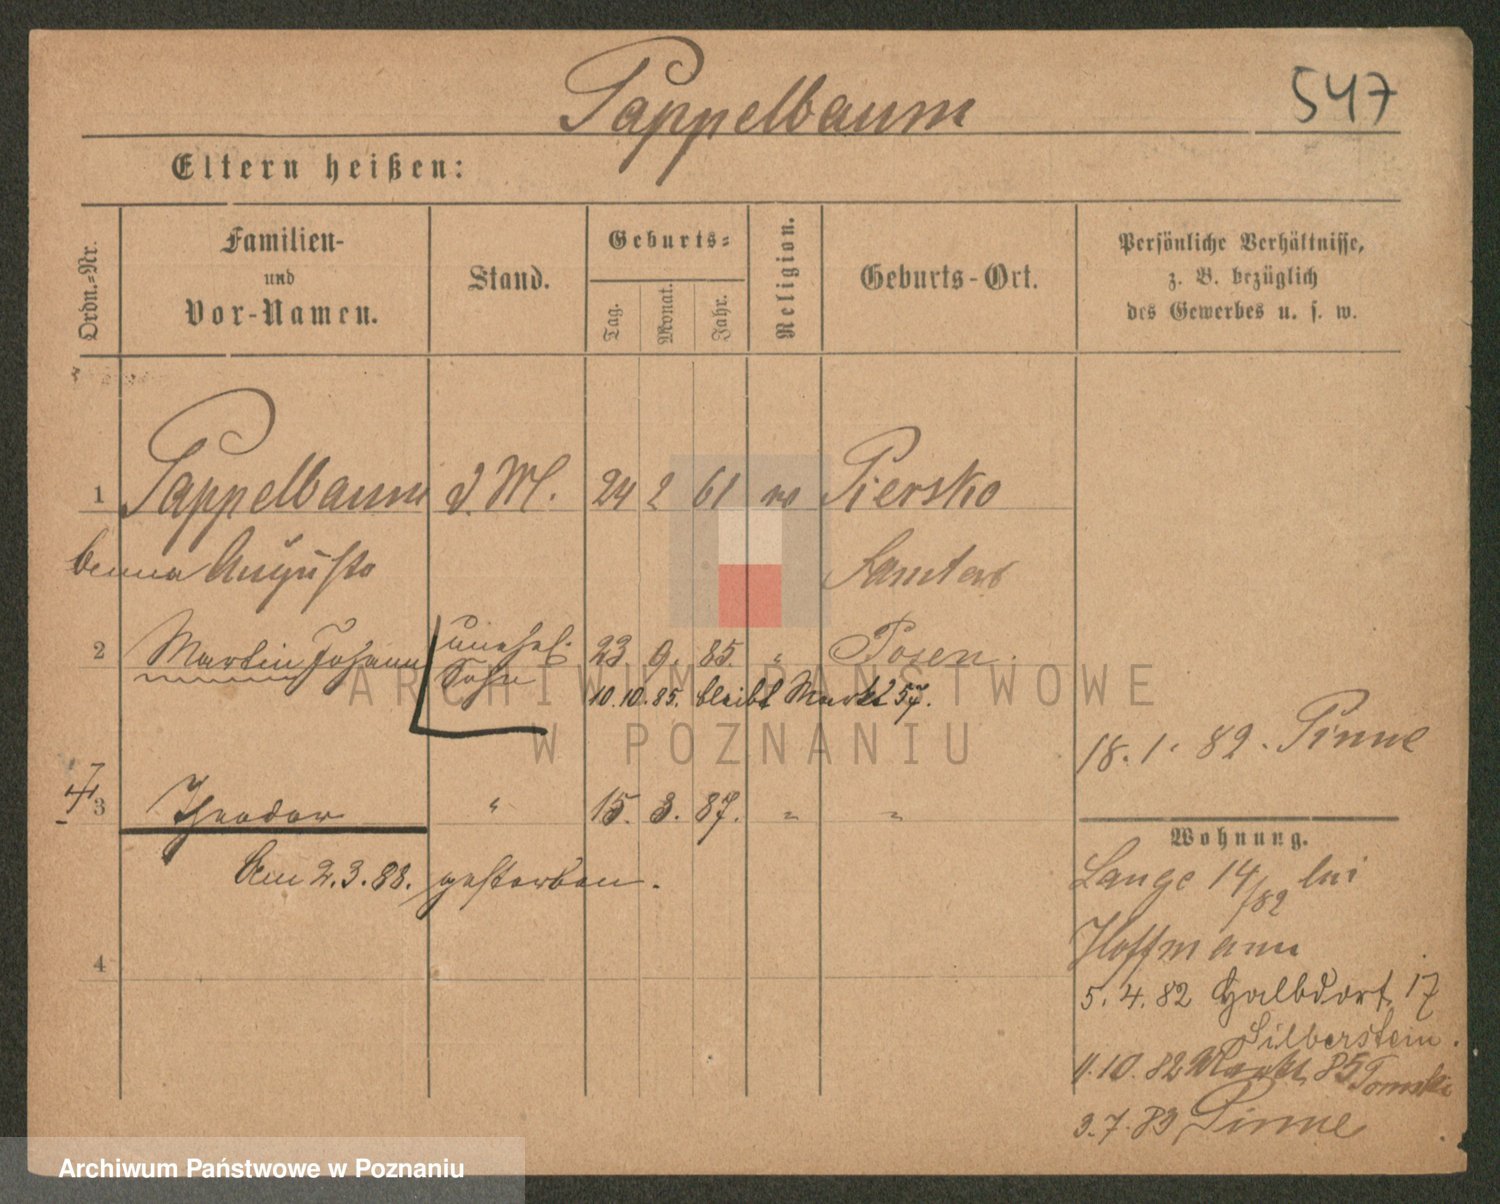 Pappelbaum
547
Eltern heißen:
Ordn.-Nr.
Familien-
und
Vor-Namen.
Stand.
Geburts-
Tag.
Monat.
Jahr.
Religion.
Geburts-Ort.
Persönliche Verhältnisse,
z. B. bezüglich
des Gewerbes u. s. w.
1 Pappelbaum d. M. 24 2 61 Piersko
Auguste Samter
2 Martin Johann unehel. 23 9. 85. " Posen.
Sohn 10.10.85. bleibt Markt 57.
18.1.82. Pinne
3 Theodor " 15. 3. 87. " "
Wohnung.
Am 2.3.88. gestorben.
Lange 14/82 bei
Hoffmann
4
5.4.82 Halbdorf. 17
Silberstein.
11.10.82 Markt 85 Tomski
3.7.83 Pinne
ARCHIWUM PAŃSTWOWE
W POZNANIU
Archiwum Państwowe w Poznaniu